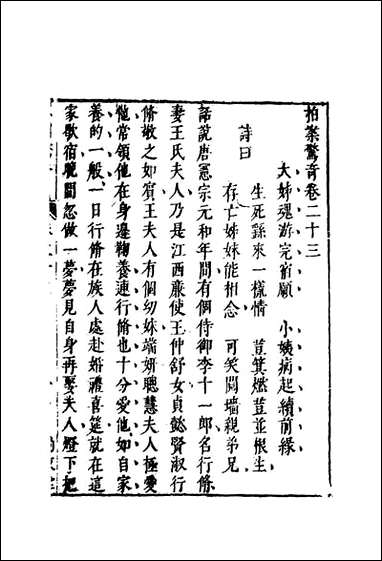 拍案驚奇卷二十三
大姊魂游完宿願 小姨病起續前緣
詩曰
生死繇來一樣情 荳箕燃荳並根生
存亡姊妹能相念 可笑鬩墻親弟兄
話說唐憲宗元和年間有個侍御李十一郎名行脩
妻王氏夫人乃是江西廉使王仲舒女貞懿賢淑行
脩敬之如賓王夫人有個幼妹端妍聰慧夫人極愛
他常領他在身邊鞠養連行脩也十分愛他如自家
養的一般一日行脩在族人處赴婚禮喜筵就在這
家歇宿晚間忽做一夢夢見自身再娶夫人燈下把